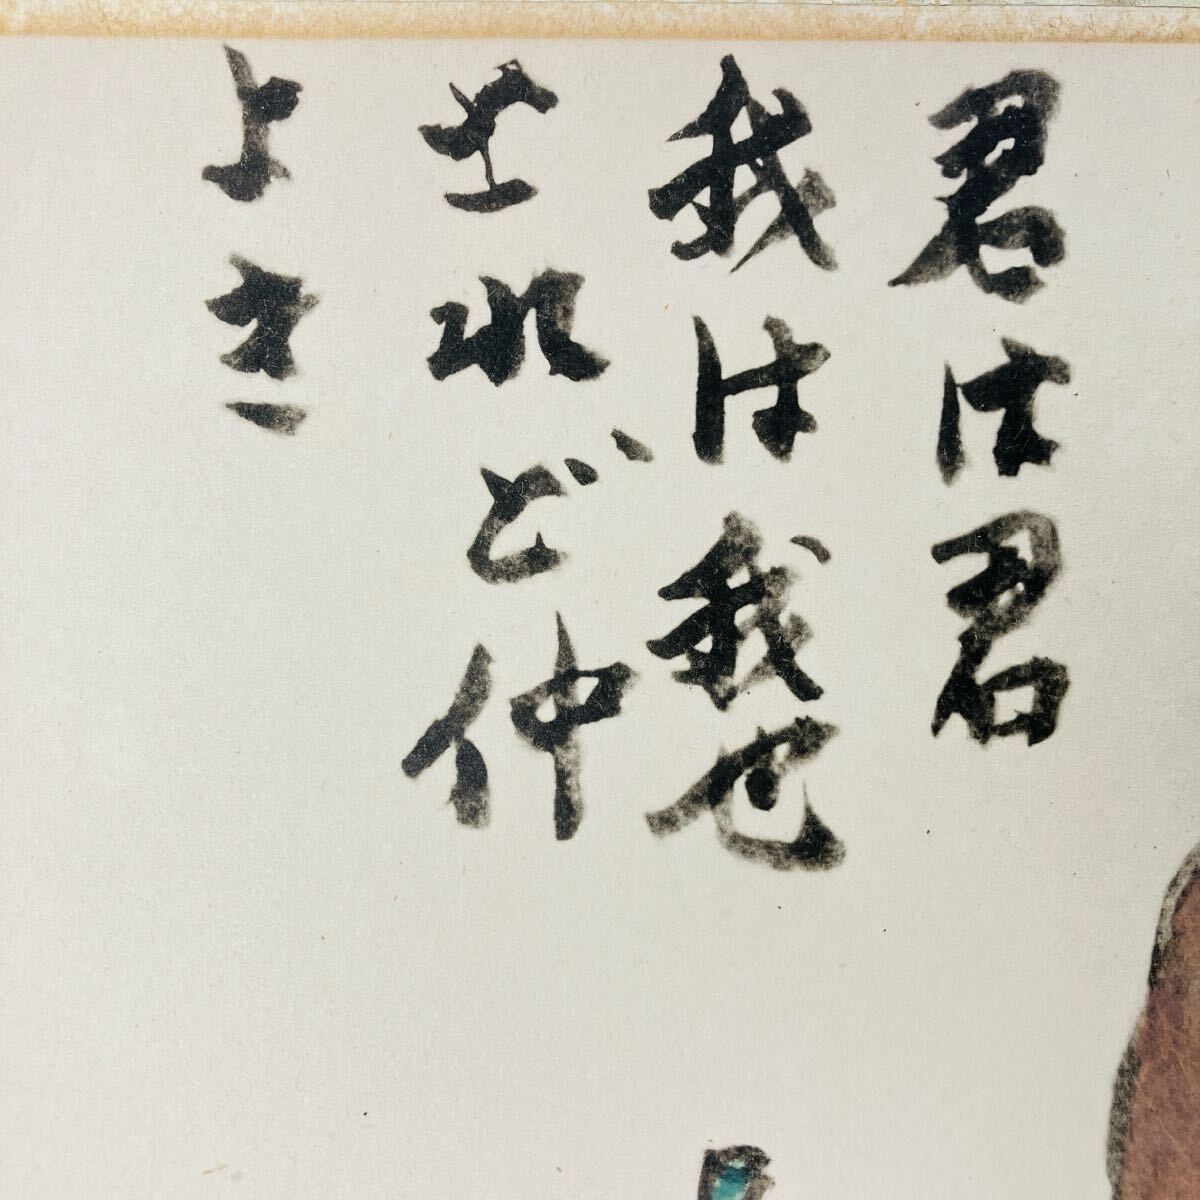 君は君
我は我也
されど仲
よき